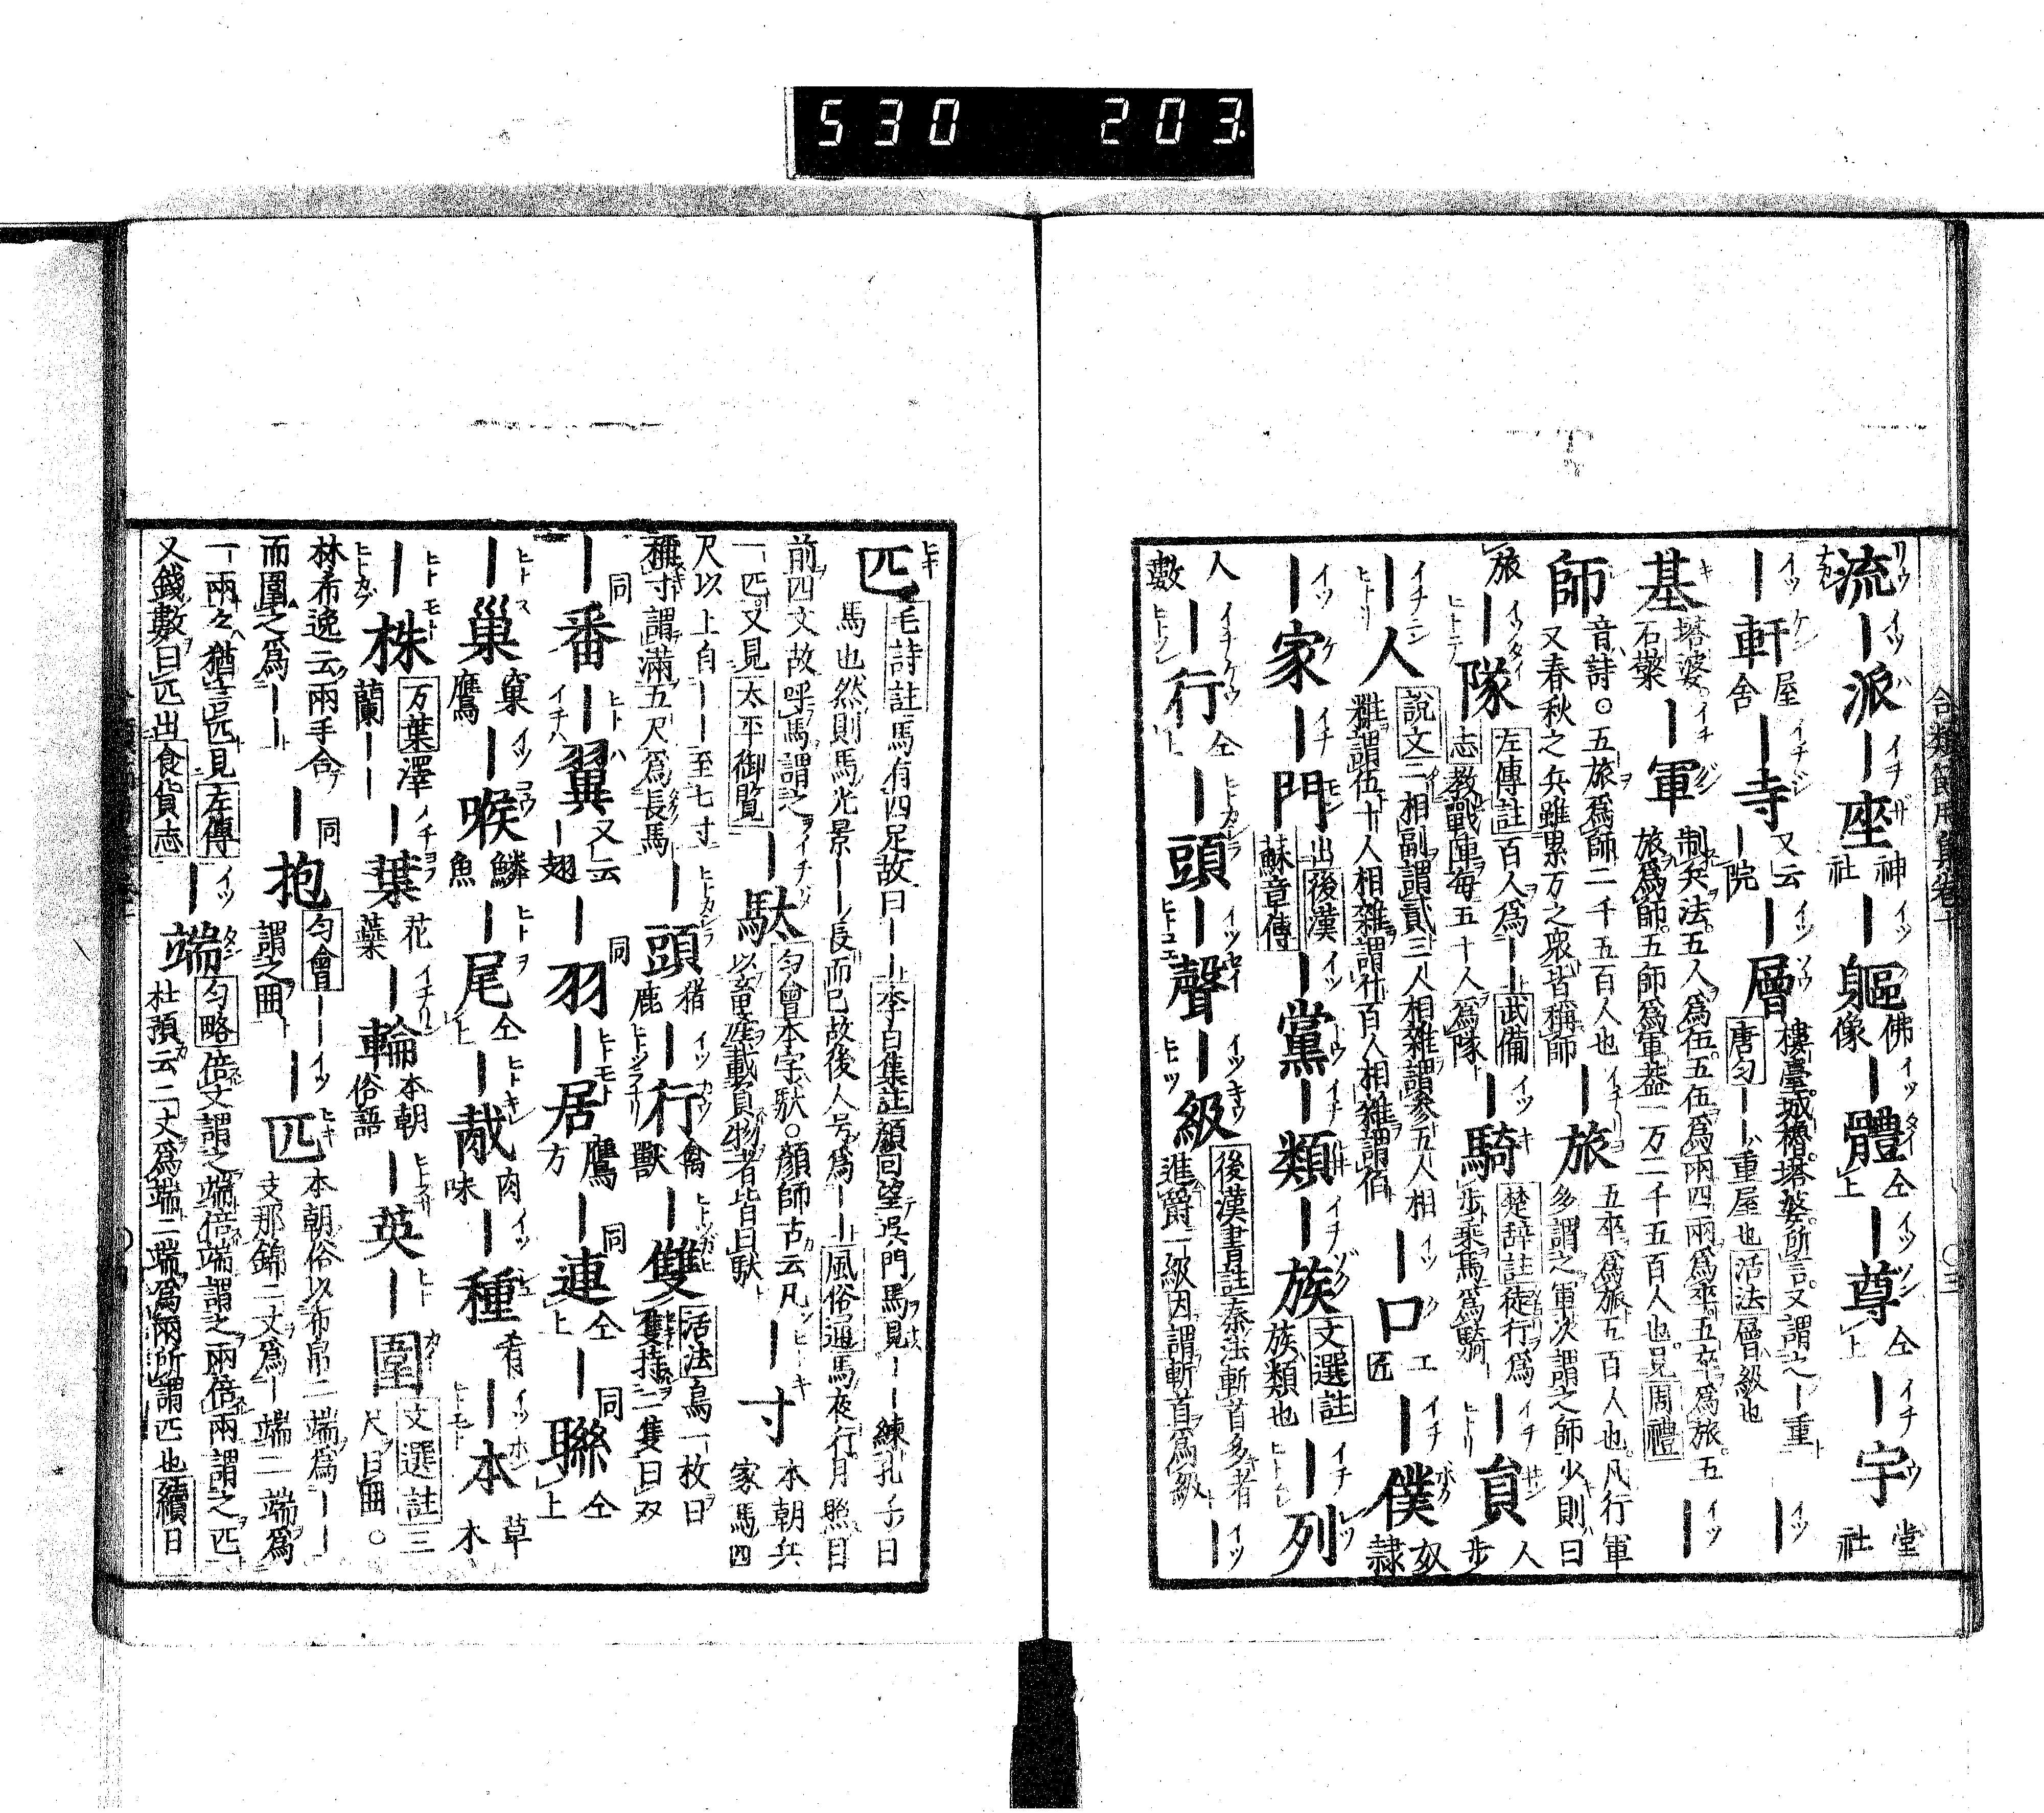 530 203
合類節用集卷十
流｜派｜座神社｜軀佛像｜體仝上｜尊仝上｜宇堂社
｜軒屋舍｜寺又云｜院｜層樓臺城櫓塔婆所言又謂之｜重唐匀｜重屋也活法層級也｜
基塔婆石檠｜軍制兵法五人爲伍五伍爲兩四兩爲卒五卒爲旅五旅爲師五師爲軍蓋一万二千五百人也見周禮｜
師音詩○五旅爲師二千五百人也又春秋之兵雖累万之衆皆稱師｜旅五卒爲旅五百人也凡行軍多謂之軍次謂之師少則曰
旅｜隊左傳註百人爲｜｜武備志教戰陣每五十人爲隊｜騎楚辞註徒行爲步乘馬爲騎｜員人步
｜人說文二相副謂貳三人相雜謂參五人相雜謂伍十人相雜謂什百人相雜謂佰｜口工匠｜僕奴隷
｜家｜門出後漢蘇章傳｜黨｜類｜族文選註族類也｜列
人數｜行仝上｜頭｜聲｜級後漢書註秦法斬首多者進爵一級因謂斬首爲級｜
匹毛詩註馬有四足故曰｜｜李白集註顔回望吳門馬見｜｜練孔子曰
馬也然則馬光景｜｜長而已故後人号爲｜｜風俗通馬夜行月照目
前四丈故呼馬謂之一匹又見太平御覧｜駄匀會本字馱○顔師古云凡以畜產載負物者皆曰馱｜寸本朝兵家馬四
尺以上自｜｜至七寸稱寸謂滿五尺爲長馬｜頭猪鹿｜行禽獸｜雙活法鳥一枚曰隻持二隻曰双
｜番同｜翼又云｜翅｜羽同｜居鷹方｜連同仝上｜聯同仝上
｜巢窠鷹｜喉鱗魚｜尾仝上｜胾肉味｜種肴｜本草木
｜株万葉澤蘭｜｜｜葉花蘂｜輪本朝俗語｜英｜圍文選註三尺曰圍○
林希逸云兩手合而圍之爲｜｜｜抱同匀會｜｜謂之圍｜匹本朝俗以布帛二端爲｜｜支那錦二丈爲｜端二端爲
一兩々猶言匹見左傳｜端匀略倍丈謂之端倍端謂之兩倍兩謂之匹
又錢數曰匹出食貨志杜預云二丈爲端二端爲兩所謂匹也續日